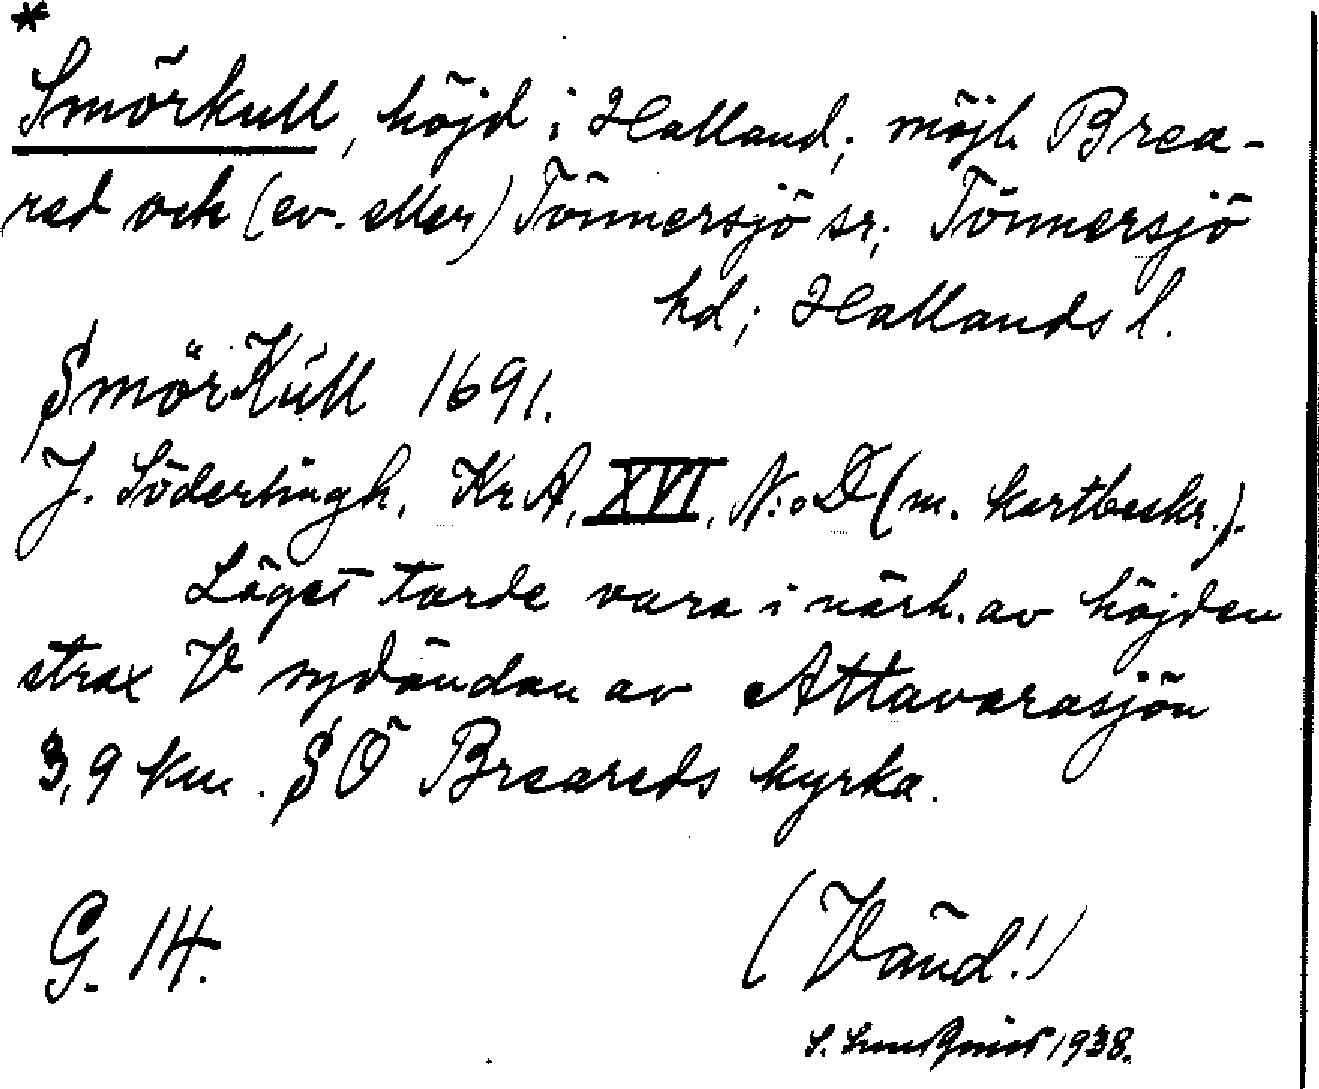 *
Smörkull, höjd i Halland; möjl. Brea-
red och (ev. eller) Tönnersjö sr; Tönnersjö
hd; Hallands l.
SmörKull 1691.
J. Söderlingh. Kr. A, XVI, N:o D (m. kartbeskr.).
Läget torde vara i närh. av höjden
strax V sydändan av Attavarasjön
3,9 km. SÖ Breareds kyrka.
G. 14. (Vänd!)
S. 1938.